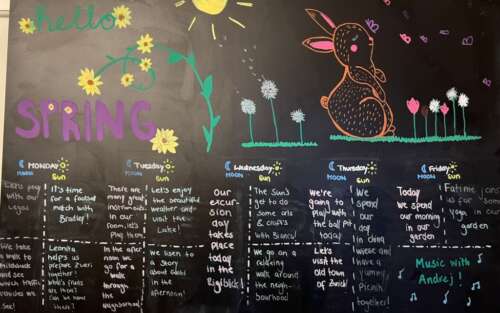 hello
SPRING
MONDAY
MOON SUN
Tuesday
MOON SUN
Wednesday
MOON SUN
Thursday
MOON SUN
Friday
MOON SUN
play
with our
Legos
It's time
for a football
match with
Bradley!
There are
many great
toys
in our
room, let's
Play them
Let's enjoy
the beautiful
weather and
visit the
Lake!
Our
excur-
sion
day
takes
place
today
in the
Rigiblick!
The Sun's
get to do
some arts
& crafts
with Bianca!
We're
going to
play with
the ball Pit
today
We
spend
our
day
in
and
have a
Yummy
Picnic
together!
Today
we spend
our morning
in our
garden
Fatime
for
yoga in
our
garden
We take
a walk to
and
see which
traffic
vehicles we
see!
Leonita
helps us
prepare Zvieri
together!
What's fruits
are there?
Can we name
them?
In the after
noon we
go for a
walk
through
the
neighborhood
We listen to
a story
about
in the
afternoon!
We go on a
relaxing
walk around
the neigh-
bourhood
Let's
visit the
old town
of Zurich!
Music with
Andrej!